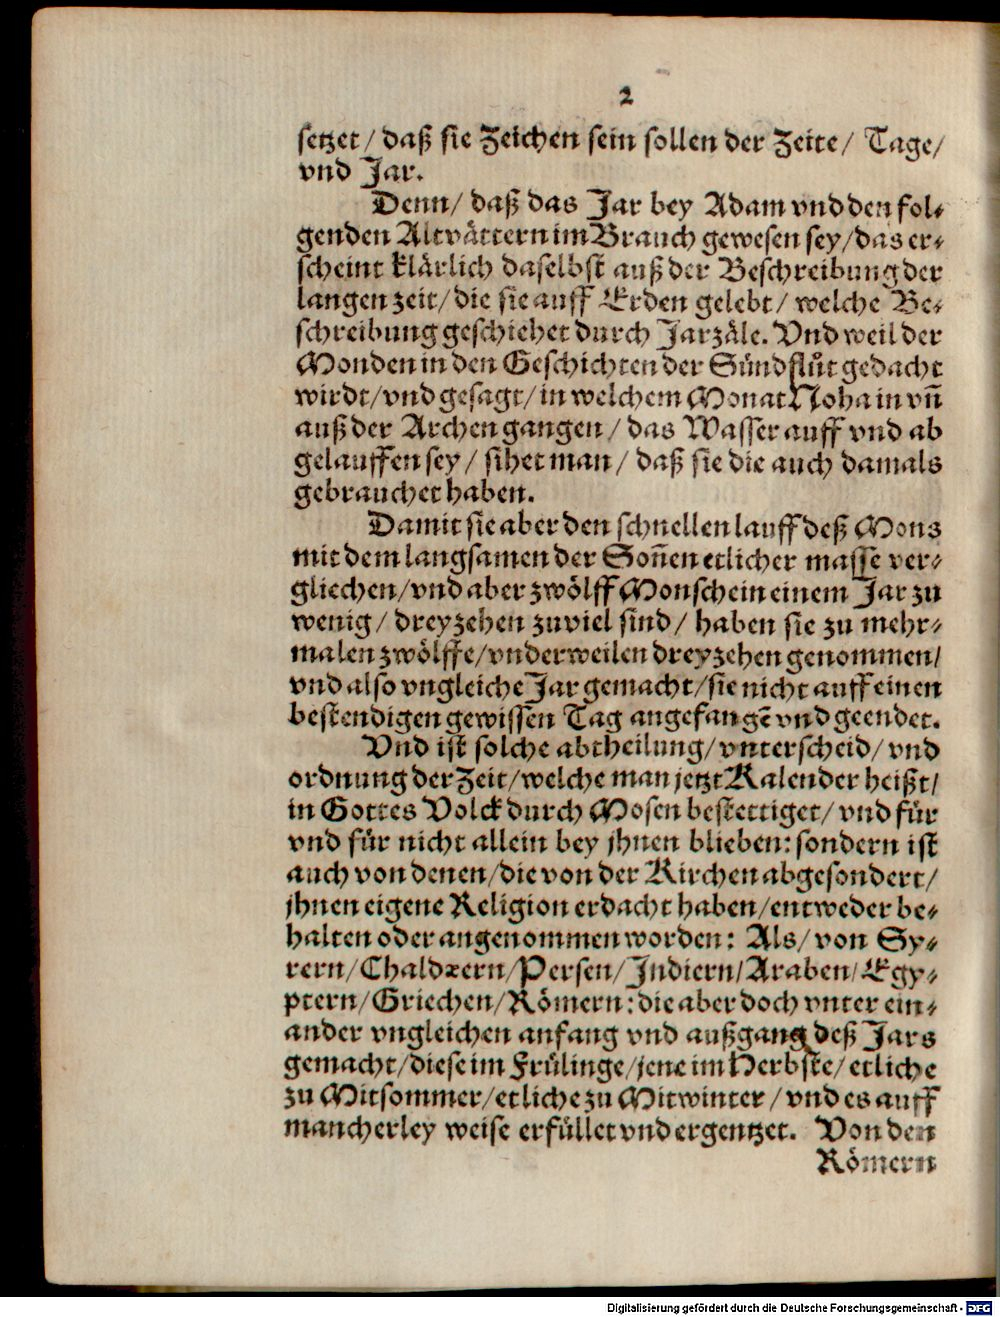 2
setzet / daß sie Zeichen sein sollen der Zeite / Tage /
vnd Jar.
Denn / daß das Jar bey Adam vnd den fol⸗
genden Altvättern im Brauch gewesen sey / das er⸗
scheint klärlich daselbst auß der Beschreibung der
langen zeit / die sie auff Erden gelebt / welche Be⸗
schreibung geschiehet durch Jarzäle. Vnd weil der
Monden in den Geschichten der Sündflůt gedacht
wirdt / vnd gesagt / in welchem Monat Noha in vñ
auß der Archen gangen / das Wasser auff vnd ab
gelauffen sey / sihet man / daß sie die auch damals
gebrauchet haben.
Damit sie aber den schnellen lauff deß Mons
mit dem langsamen der Soñen etlicher masse ver⸗
gliechen / vnd aber zwölff Monschein einem Jar zu
wenig / dreyzehen zuviel sind / haben sie zu mehr⸗
malen zwölffe / vnderweilen dreyzehen genommen /
vnd also vngleiche Jar gemacht / sie nicht auff einen
bestendigen gewissen Tag angefangē vnd geendet.
Vnd ist solche abtheilung / vnterscheid / vnd
ordnung der Zeit / welche man jetzt Kalender heißt /
in Gottes Volck durch Mosen bestettiget / vnd für
vnd für nicht allein bey jhnen blieben: sondern ist
auch von denen / die von der Kirchen abgesondert /
jhnen eigene Religion erdacht haben / entweder be⸗
halten oder angenommen worden: Als / von Sy⸗
rern / Chaldæern / Persen / Indiern / Araben / Egy⸗
ptern / Griechen / Römern: die aber doch vnter ein⸗
ander vngleichen anfang vnd außgang deß Jars
gemacht / diese im Frülinge / jene im Herbste / etliche
zu Mitsommer / etliche zu Mitwinter / vnd es auff
mancherley weise erfüllet vnd ergentzet. Von den
Römern
Digitalisierung gefördert durch die Deutsche Forschungsgemeinschaft - DFG